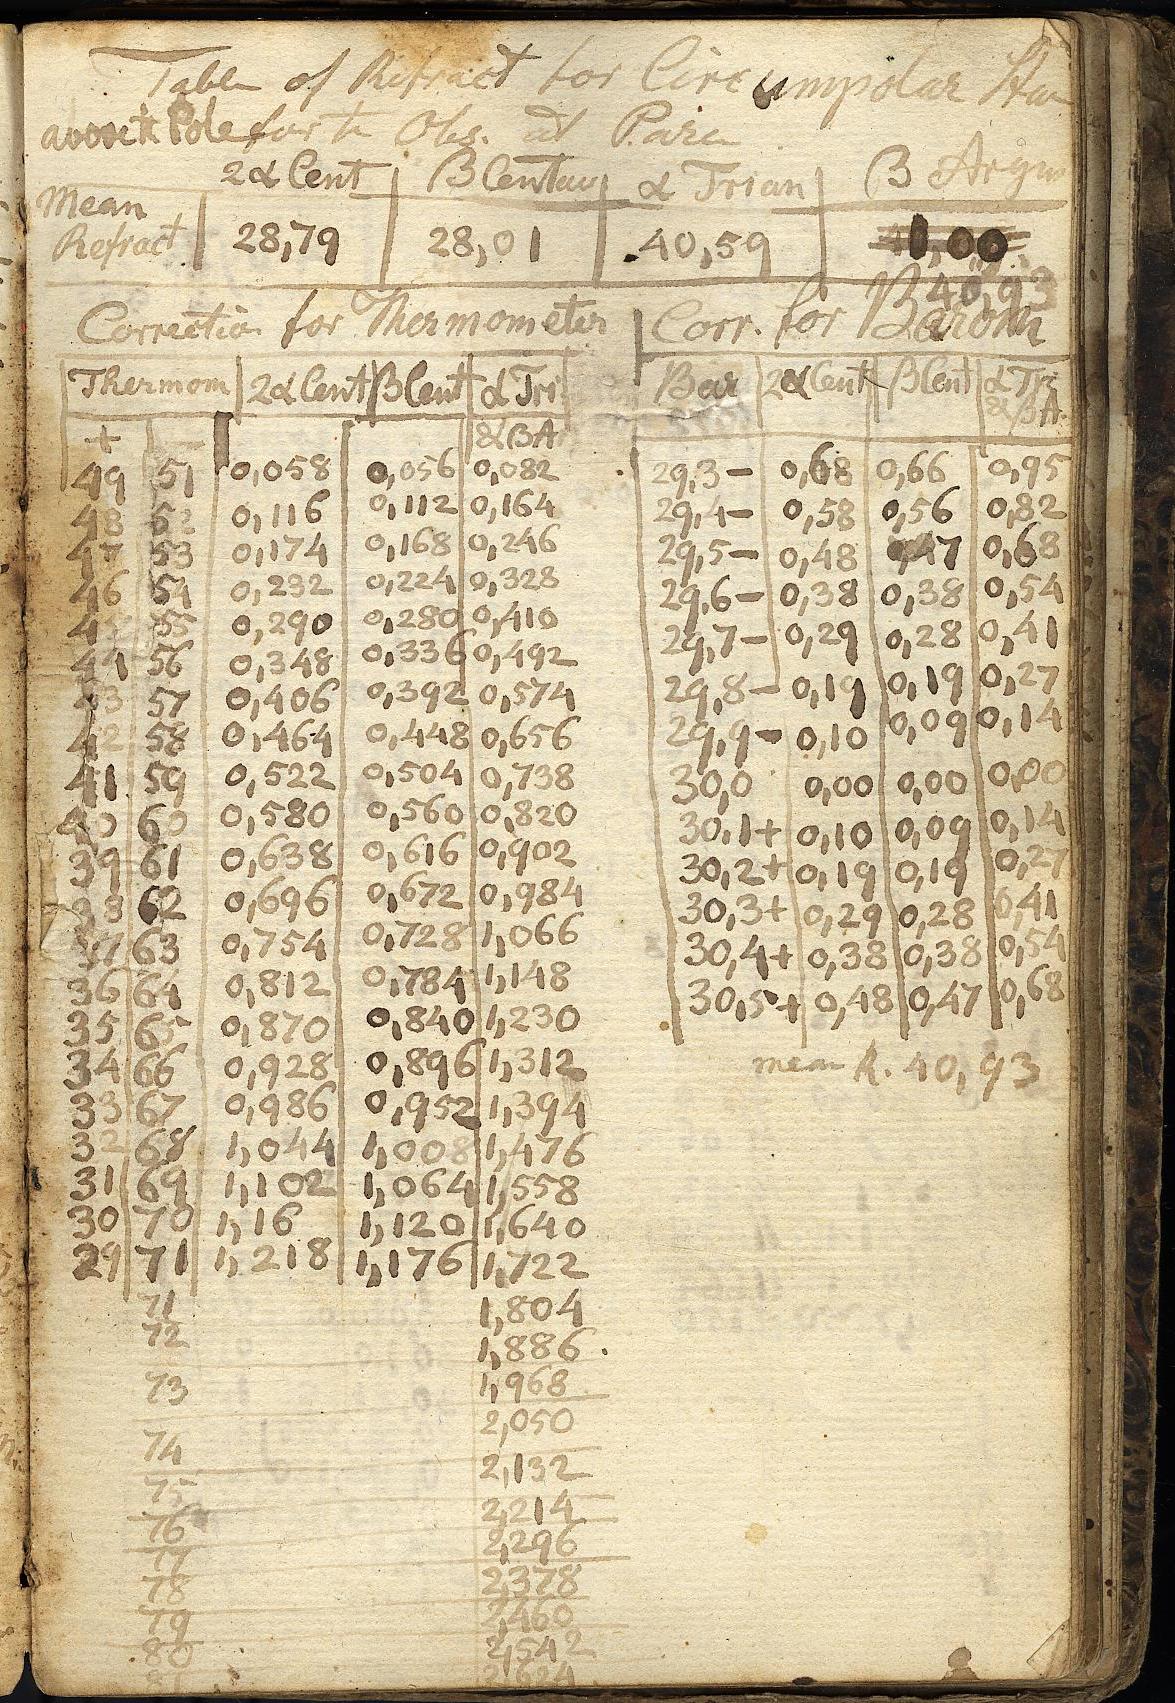 Table of Refract for Circumpolar Star
above the Pole for the Obs. at Para
2α Cent β Centau α Trian β Argus
Mean
Refract. 28,79 28,01 40,59 41,00
40,93
Correction for Thermometer Corr. for Barom
Thermom 2α Cent β Cent α Tri Bar 2α Cent β Cent α Tri
+ — & βA & βA
49 51 0,058 0,056 0,082 29,3- 0,68 0,66 0,95
48 52 0,116 0,112 0,164 29,4- 0,58 0,56 0,82
47 53 0,174 0,168 0,246 29,5- 0,48 0,47 0,68
46 54 0,232 0,224 0,328 29,6- 0,38 0,38 0,54
45 55 0,290 0,280 0,410 29,7- 0,29 0,28 0,41
44 56 0,348 0,336 0,492 29,8- 0,19 0,19 0,27
43 57 0,406 0,392 0,574 29,9- 0,10 0,09 0,14
42 58 0,464 0,448 0,656 30,0 0,00 0,00 0,00
41 59 0,522 0,504 0,738 30,1+ 0,10 0,09 0,14
40 60 0,580 0,560 0,820 30,2+ 0,19 0,19 0,27
39 61 0,638 0,616 0,902 30,3+ 0,29 0,28 0,41
38 62 0,696 0,672 0,984 30,4+ 0,38 0,38 0,54
37 63 0,754 0,728 1,066 30,5+ 0,48 0,47 0,68
36 64 0,812 0,784 1,148
35 65 0,870 0,840 1,230
34 66 0,928 0,896 1,312 mean R. 40,93
33 67 0,986 0,952 1,394
32 68 1,044 1,008 1,476
31 69 1,102 1,064 1,558
30 70 1,16 1,120 1,640
29 71 1,218 1,176 1,722
71 1,804
72 1,886
73 1,968
2,050
74 2,132
75 2,214
76 2,296
77 2,378
78 2,460
79 2,542
80 2,624
81